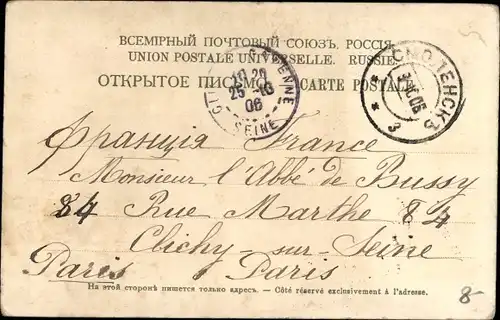 ВСЕМІРНЫЙ ПОЧТОВЫЙ СОЮЗЪ. РОССІЯ.
UNION POSTALE UNIVERSELLE. RUSSIE.
ОТКРЫТОЕ ПИСЬМО. CARTE POSTALE.
GARENNE
10 20
25 10
06
SEINE
СМОЛЕНСКЪ
3
Франція France
Monsieur l'Abbé de Bussy
84 Rue Marthe 84
Clichy-sur-Seine
Paris Paris
На этой сторонѣ пишется только адресъ. — Côté réservé exclusivement à l'adresse.
8-